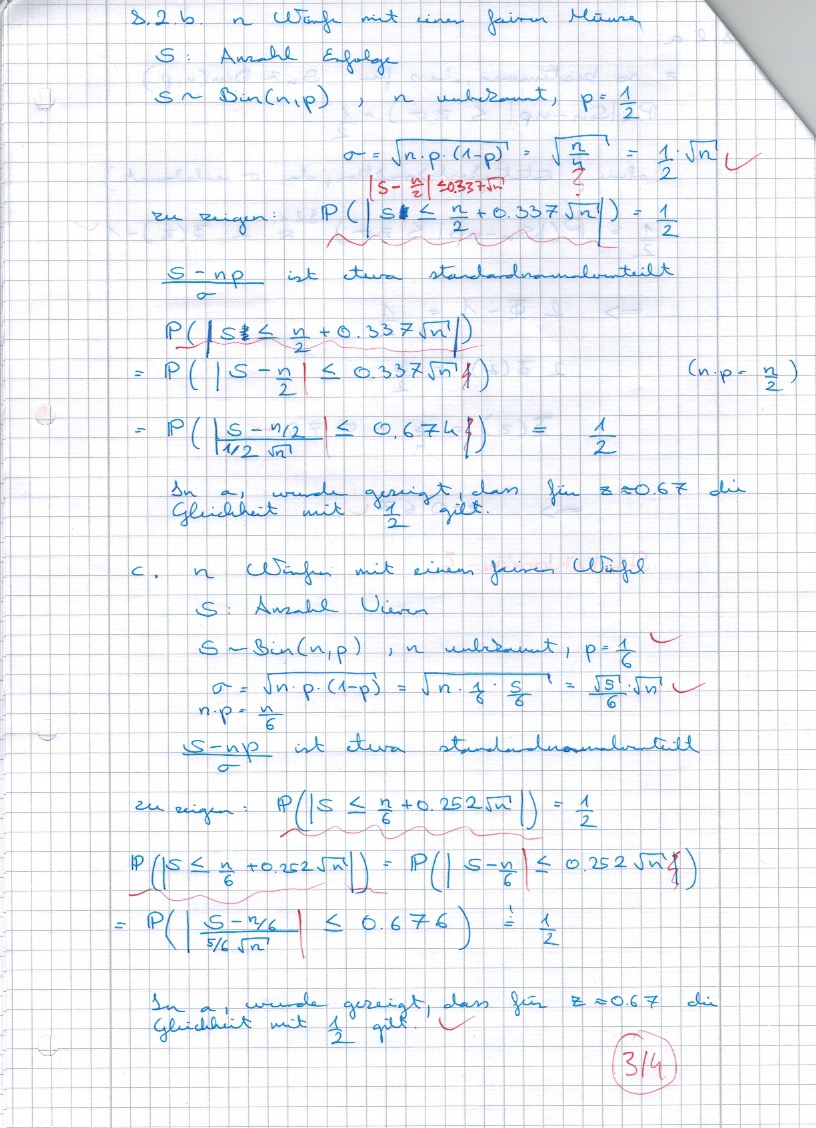 8.2.b. n Würfe mit einer fairen Münze
S: Anzahl Erfolge
S ~ Bin(n,p) , n unbekannt, p = 1/2
σ = √(n·p·(1-p)) = √(n/4) = 1/2 · √n ✓
|S - n/2| ≤ 0.337√n ?
zu zeigen: ℙ(|S ≤ n/2 + 0.337√n|) = 1/2
(S-np)/σ ist etwa standardnormalverteilt
ℙ(|S ≤ n/2 + 0.337√n|)
= ℙ(|S - n/2| ≤ 0.337√n) (n·p = n/2)
= ℙ(|(S - n/2)/(1/2 √n)| ≤ 0.674) = 1/2
In a, wurde gezeigt, dass für z ≈ 0.67 die
Gleichheit mit 1/2 gilt.
c. n Würfen mit einem fairen Würfel
S: Anzahl Vieren
S ~ Bin(n,p) , n unbekannt, p = 1/6 ✓
σ = √(n·p·(1-p)) = √(n · 1/6 · 5/6) = √5/6 · √n ✓
n·p = n/6
(S-np)/σ ist etwa standardnormalverteilt
zu zeigen: ℙ(|S ≤ n/6 + 0.252√n|) = 1/2
ℙ(|S ≤ n/6 + 0.252√n|) = ℙ(|S - n/6| ≤ 0.252√n)
= ℙ(|(S - n/6)/(5/6 √n)| ≤ 0.676) =! 1/2
In a, wurde gezeigt, dass für z ≈ 0.67 die
Gleichheit mit 1/2 gilt. ✓
3/4